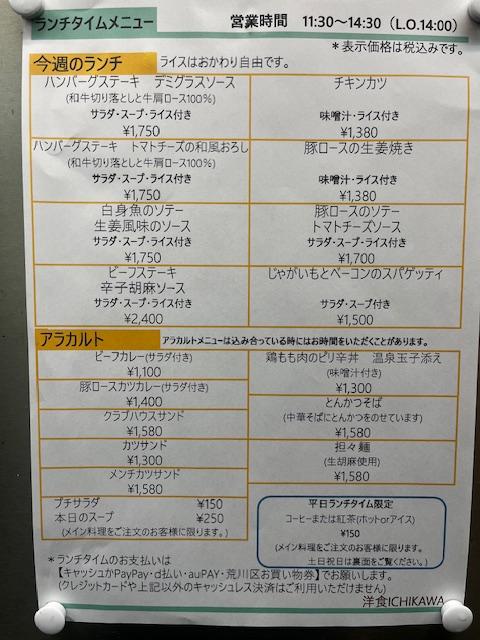 ランチタイムメニュー
営業時間 11:30～14:30（L.O.14:00）
＊表示価格は税込みです。
今週のランチ
ライスはおかわり自由です。
ハンバーグステーキ デミグラスソース
(和牛切り落としと牛肩ロース100%)
サラダ・スープ・ライス付き
¥1,750
チキンカツ
味噌汁・ライス付き
¥1,380
ハンバーグステーキ トマトチーズの和風おろし
(和牛切り落としと牛肩ロース100%)
サラダ・スープ・ライス付き
¥1,750
豚ロースの生姜焼き
味噌汁・ライス付き
¥1,380
白身魚のソテー
生姜風味のソース
サラダ・スープ・ライス付き
¥1,750
豚ロースのソテー
トマトチーズソース
サラダ・スープ・ライス付き
¥1,700
ビーフステーキ
辛子胡麻ソース
サラダ・スープ・ライス付き
¥2,400
じゃがいもとベーコンのスパゲッティ
サラダ・スープ付き
¥1,500
アラカルト
アラカルトメニューは込み合っている時にはお時間をいただくことがあります。
ビーフカレー(サラダ付き)
¥1,100
豚ロースカツカレー(サラダ付き)
¥1,400
クラブハウスサンド
¥1,580
カツサンド
¥1,300
メンチカツサンド
¥1,580
鶏もも肉のピリ辛丼 温泉玉子添え
(味噌汁付き)
¥1,300
とんかつそば
(中華そばにとんかつをのせています)
¥1,580
担々麺
(生胡麻使用)
¥1,580
プチサラダ ¥150
本日のスープ ¥250
(メイン料理をご注文のお客様に限ります。)
平日ランチタイム限定
コーヒーまたは紅茶(ホットorアイス)
¥150
(メイン料理をご注文のお客様に限ります。
土日祝日は裏面をご覧ください。)
＊ランチタイムのお支払いは
【キャッシュかPayPay・d払い・auPAY・荒川区お買い物券】でお願いします。
(クレジットカードや上記以外のキャッシュレス決済はご利用いただけません)
洋食ICHIKAWA